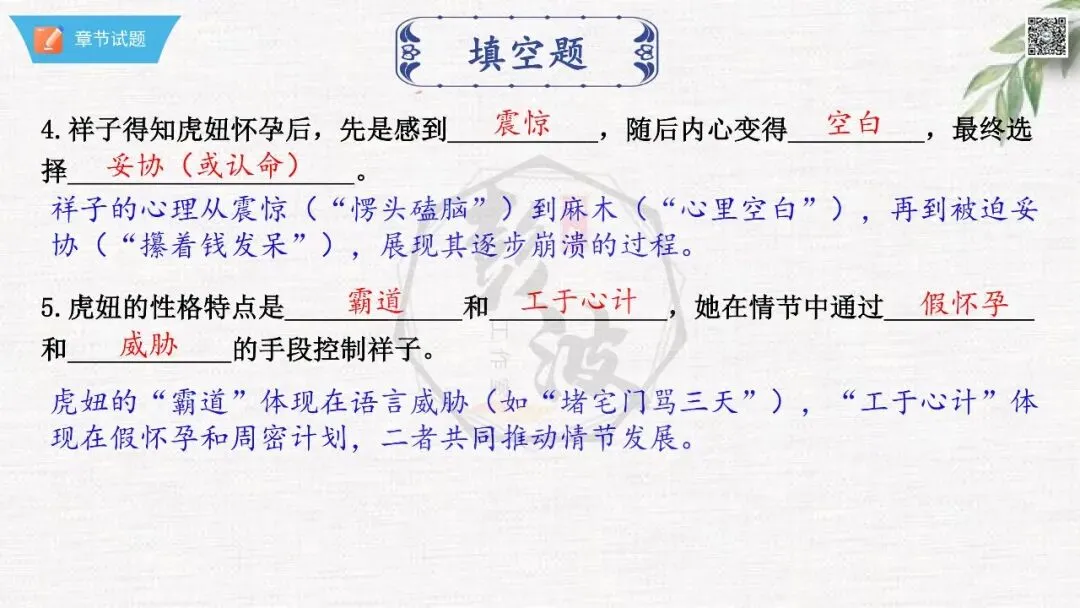 章节试题
填空题
4.祥子得知虎妞怀孕后，先是感到 震惊 ，随后内心变得 空白 ，最终选
择 妥协（或认命） 。
祥子的心理从震惊（“愣头磕脑”）到麻木（“心里空白”），再到被迫妥
协（“攥着钱发呆”），展现其逐步崩溃的过程。
5.虎妞的性格特点是 霸道 和 工于心计 ，她在情节中通过 假怀孕
和 威胁 的手段控制祥子。
虎妞的“霸道”体现在语言威胁（如“堵宅门骂三天”），“工于心计”体
现在假怀孕和周密计划，二者共同推动情节发展。